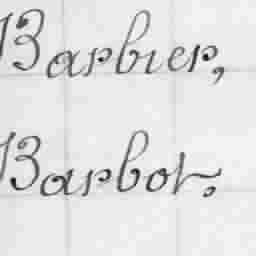 Barbier,
Barbot.